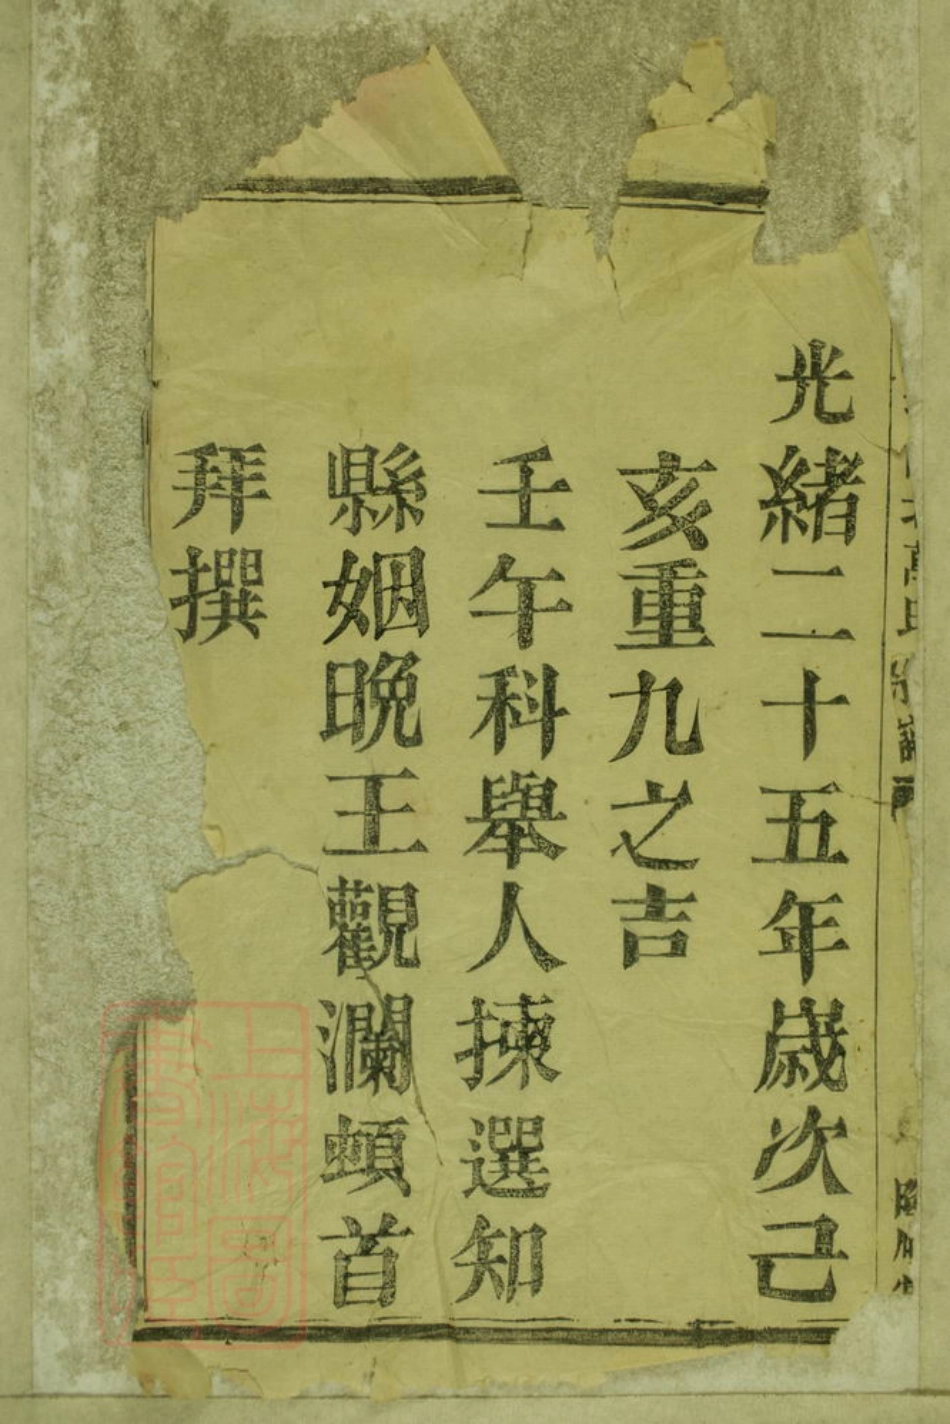 光緒二十五年歲次己
亥重九之吉
壬午科舉人揀選知
縣姻晚王觀瀾頓首
拜撰